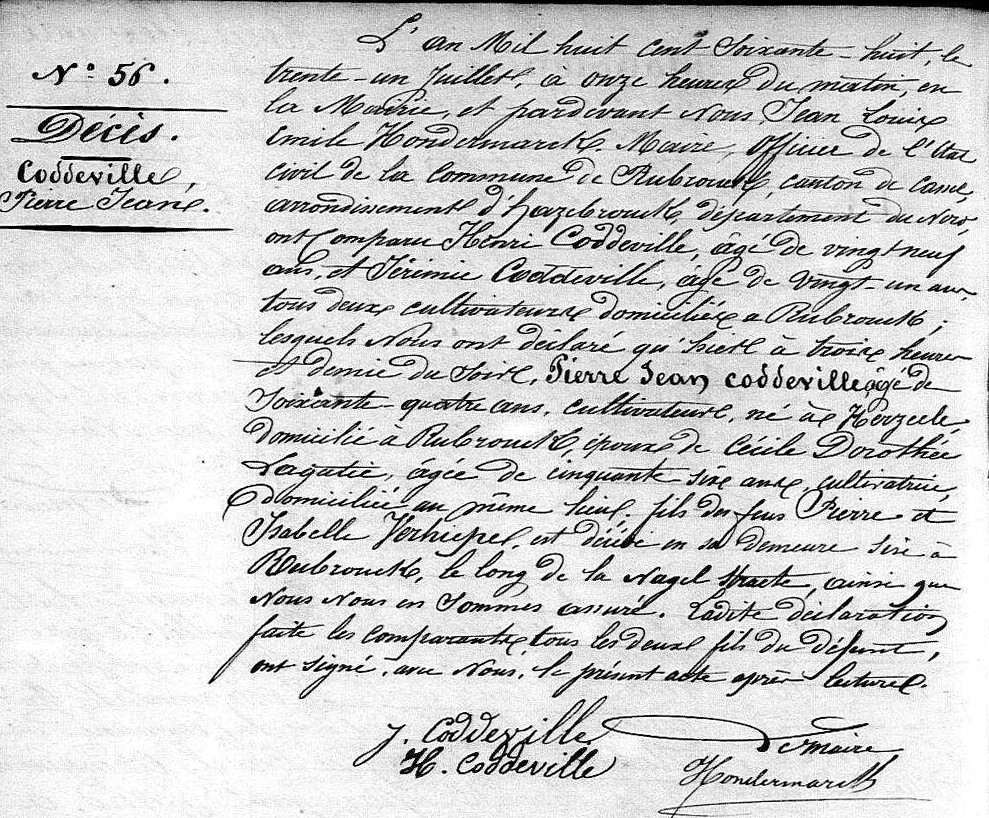 N° 56.
Décès.
Coddeville,
Pierre Jean.
L'an Mil huit cent Soixante-huit, le
trente-un Juillet, à onze heures du matin, en
la Mairie, et pardevant Nous Jean Louis
Emile Hondermarck Maire, Officier de l'Etat
civil de la commune de Rubrouck, canton de Cassel,
arrondissement d'Hazebrouck, département du Nord,
ont comparu Henri Coddeville, âgé de vingt neuf
ans, et Jérémie Coddeville, âgé de vingt-un ans,
tous deux cultivateurs domiciliés à Rubrouck ;
lesquels Nous ont déclaré qu'hier à trois heures
et demie du soir, Pierre Jean Coddeville, âgé de
Soixante-quatre ans, cultivateur, né à Herzeele,
domicilié à Rubrouck, époux de Cécile Dorothée
Lagatie, âgée de cinquante six ans, cultivatrice,
domiciliée au même lieu, fils des feus Pierre et
Isabelle, est décédé en sa demeure sise à
Rubrouck, le long de la Nagel Straete, ainsi que
Nous Nous en sommes assuré. Ladite déclaration
faite les comparants, tous les deux fils du défunt,
ont signé, avec Nous, le présent acte après lecture.
J. Coddeville
H. Coddeville
Le Maire
Hondermarck